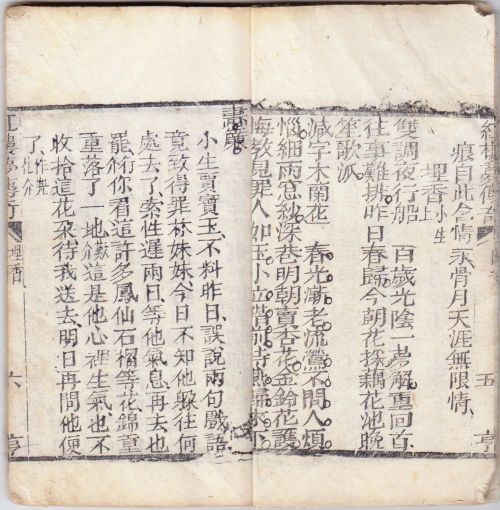 痕自此今情永骨月天涯無限情
埋香
小生上
雙調夜行船 百歲光陰一重回首
往事難排昨日春歸今朝花採藕花池晚
笙歌派
減字木蘭花 春光漸老流鶯不問人煩
惱細雨窓紗深巷明朝賣杏花金鈴花護
悔教見罪人如玉小立待來小
五 亨
畫簾
小生賈寶玉不料昨日誤說兩句戲語
竟致得罪林妹妹今日不知他躲往何
處去了索性遲兩日等他氣息再去也
罷行你看這許多鳳仙石榴等花錦重
重落了一地這是他心裡生氣也不
收拾這花朶待我送去明日再問他便
了作
埋香 六 亨